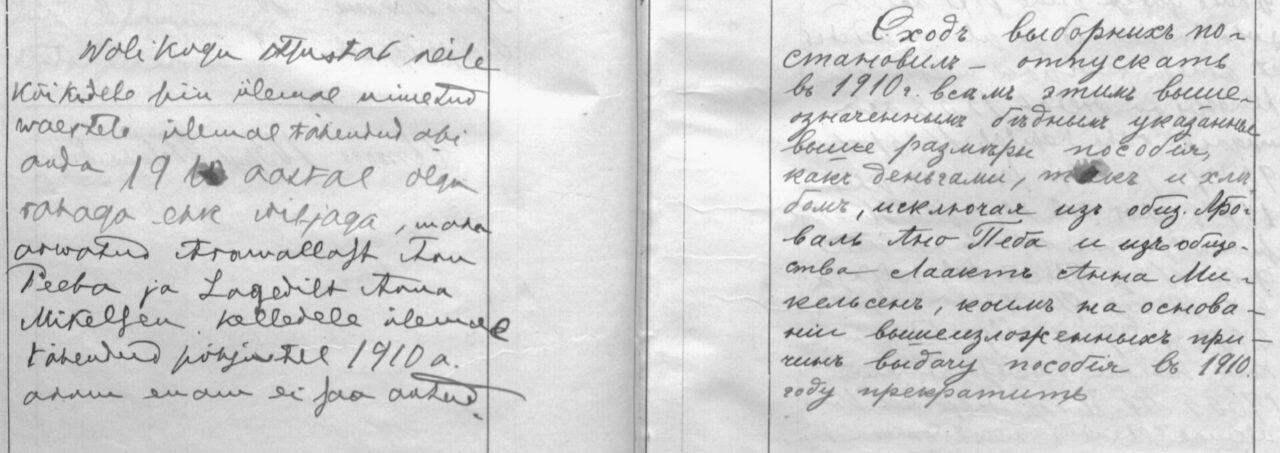 Wolikogu otsustas neile
kõikidele siin ülemal nimetud
waestele ülemal tähendud abi
anda 1910 aastal olgu
rahaga ehk wiljaga, maha
arwatud Arowallast Anu
Peeba ja Lagedilt Anna
Mikelsen, kelledele ülemal
tähendud põhjustel 1910 a.
annu enam ei saa antud.
Сходъ выборныхъ по-
становилъ – отпускать
въ 1910 г. всѣмъ этимъ выше-
означеннымъ бѣднымъ указанные
выше размѣры пособія,
какъ деньгами, такъ и хлѣ-
бомъ, исключая изъ общ. Аро-
валь Ано Пеба и изъ обще-
ства Лаактъ Анна Ми-
кельсенъ, коимъ на основа-
ніи вышеизложенныхъ при-
чинъ выдачу пособія въ 1910.
году прекратить